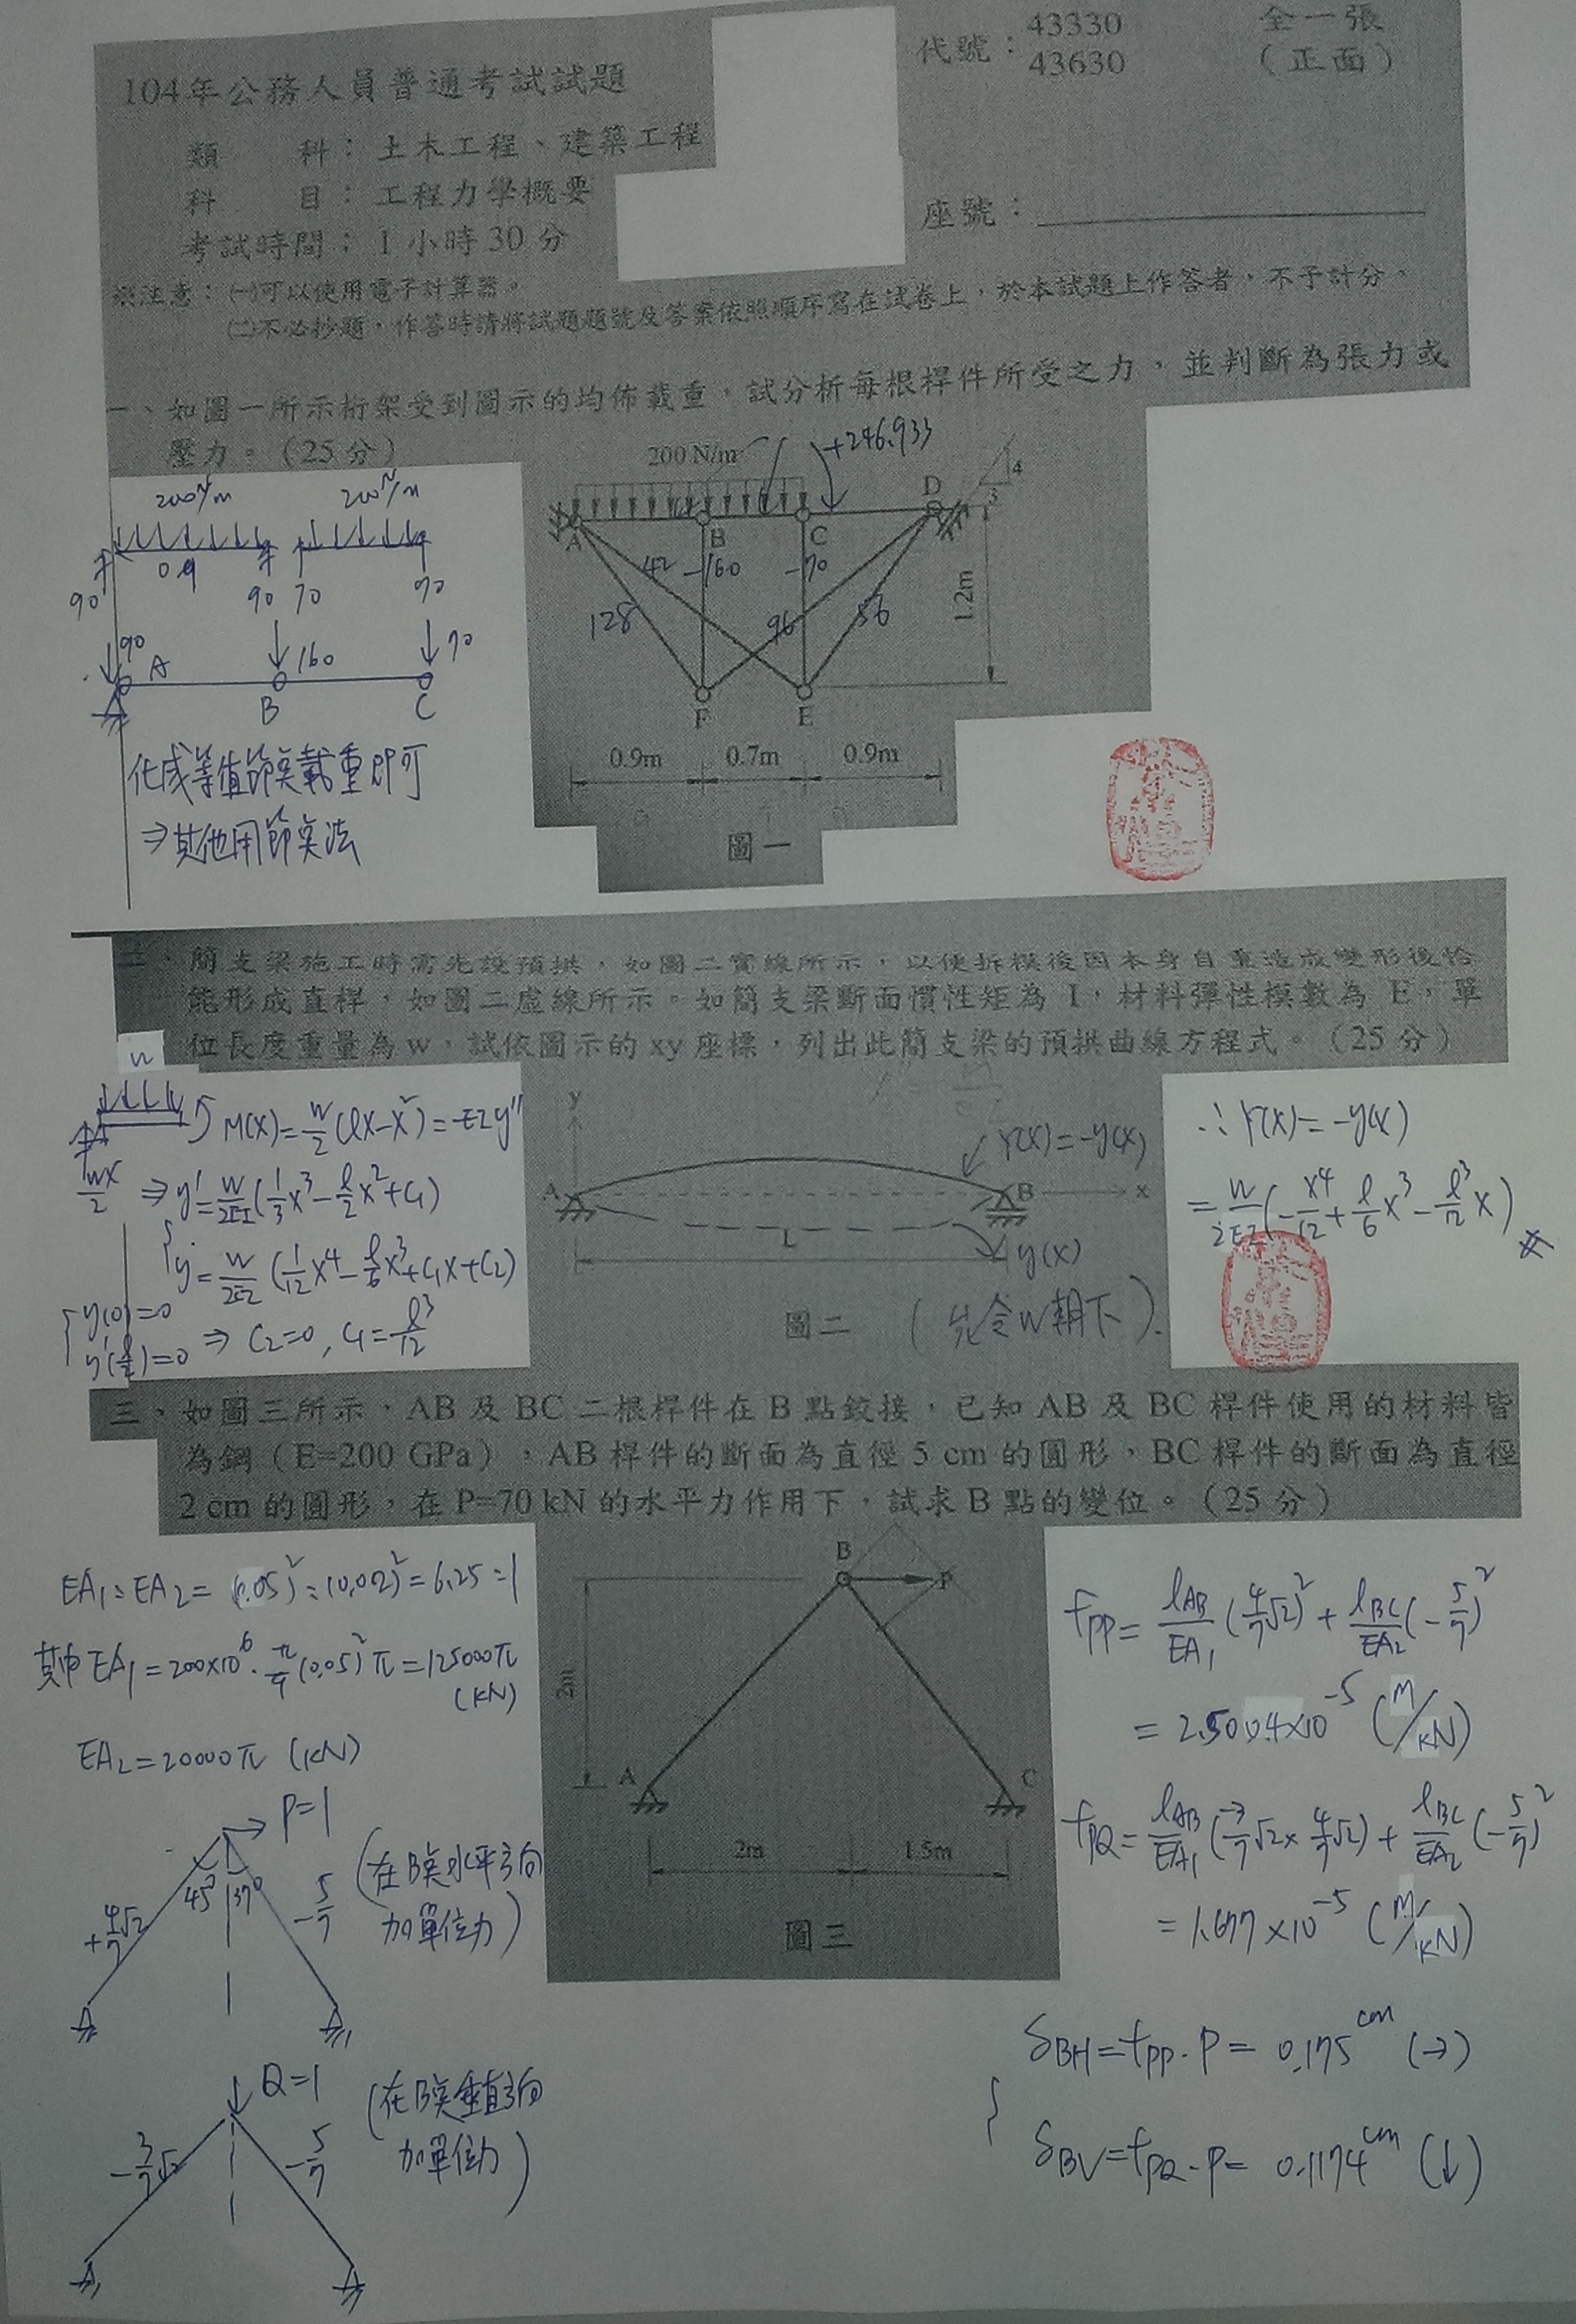 104年公務人員普通考試試題
代號：43330
43630
全一張
（正面）
類 科：土木工程、建築工程
科 目：工程力學概要
考試時間：1 小時 30 分
座號：
※注意：㈠可以使用電子計算器。
㈡不必抄題，作答時請將試題題號及答案依照順序寫在試卷上，於本試題上作答者，不予計分。
一、如圖一所示桁架受到圖示的均佈載重，試分析每根桿件所受之力，並判斷為張力或
壓力。（25 分）
200 N/m
+246.933
200N/m 200N/m
0.9
90 90 70 70
90 A 160 70
B C
化成等值節点載重即可
⇒其他用節点法
A B C D
4
3
42 -160 -70
128 96 56
1.2m
F E
0.9m 0.7m 0.9m
圖一
二、簡支梁施工時需先設預拱，如圖二實線所示，以使拆模後因本身自重造成變形後恰
能形成直桿，如圖二虛線所示。如簡支梁斷面慣性矩為 I，材料彈性模數為 E，單
位長度重量為 w，試依圖示的 xy 座標，列出此簡支梁的預拱曲線方程式。（25 分）
w
M(x)=w/2(ℓx-x²)=-EIy″
wx/2
⇒y′=w/2EI(1/3x³-ℓ/2x²+C₁)
y=w/2EI(1/12x⁴-ℓ/6x³+C₁x+C₂)
y(0)=0
y′(ℓ/2)=0 ⇒ C₂=0, C₁=ℓ³/12
y
A B x
L
Y(x)=-y(x)
y(x)
圖二 (先令W朝下).
∴Y(x)=-y(x)
=w/2EI(-x⁴/12+ℓ/6x³-ℓ³/12x)
三、如圖三所示，AB 及 BC 二根桿件在 B 點鉸接，已知 AB 及 BC 桿件使用的材料皆
為鋼（E=200 GPa），AB 桿件的斷面為直徑 5 cm 的圓形，BC 桿件的斷面為直徑
2 cm 的圓形，在 P=70 kN 的水平力作用下，試求 B 點的變位。（25 分）
EA₁:EA₂=(0.05)²:(0.02)²=6.25:1
其中EA₁=200×10⁶·π/4(0.05)²π=125000π
(kN)
EA₂=20000π (kN)
P=1
45° 37°
+4/7√2 -5/7
(在B点水平方向
加單位力)
Q=1
-3/7√2 -5/7
(在B点垂直方向
加單位力)
B P
2m
A C
2m 1.5m
圖三
fPP=ℓAB/EA₁(4/7√2)²+ℓBC/EA₂(-5/7)²
=2.5004×10⁻⁵ (M/kN)
fPQ=ℓAB/EA₁(-3/7√2×4/7√2)+ℓBC/EA₂(-5/7)²
=1.677×10⁻⁵ (M/kN)
δBH=fPP·P=0.175cm (→)
δBV=fPQ·P=0.1174cm (↓)